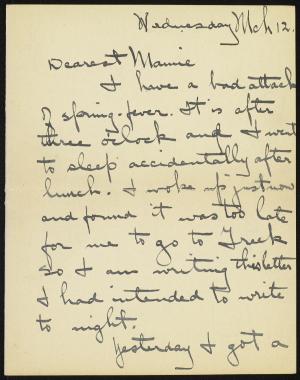 Wednesday Mch 12.
Dearest Mamie
I have a bad attack
of spring-fever. It is after
three o'clock and I went
to sleep accidentally after
lunch. I woke up just now
and found it was too late
for me to go to Greek
so I am writing this letter
I had intended to write
to night.
Yesterday I got a